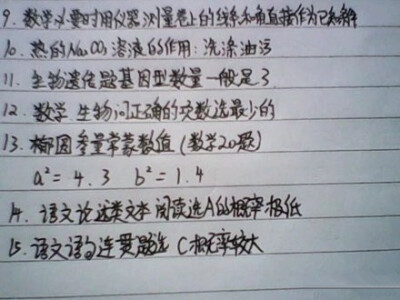 9. 数学必要时用仪器测量卷上的线和角直接作为已知条件
10. 热的Na₂CO₃溶液的作用：洗涤油污
11. 生物遗传题基因型数量一般是3
12. 数学 生物问正确的交数选最少的
13. 椭圆参量常蒙数值（数学20题）
a² = 4.3 b² = 1.4
14. 语文论述类文本阅读选A的概率极低
15. 语文语句连贯题选C概率较大